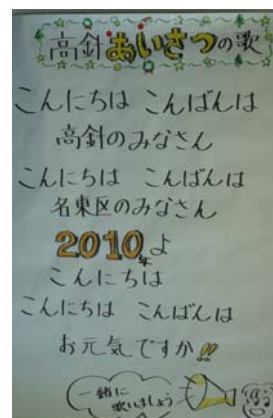 高針あいさつの歌
こんにちは こんばんは
高針のみなさん
こんにちは こんばんは
名東区のみなさん
2010年よ
こんにちは
こんにちは こんばんは
お元気ですか!!
一緒に
歌いましょう